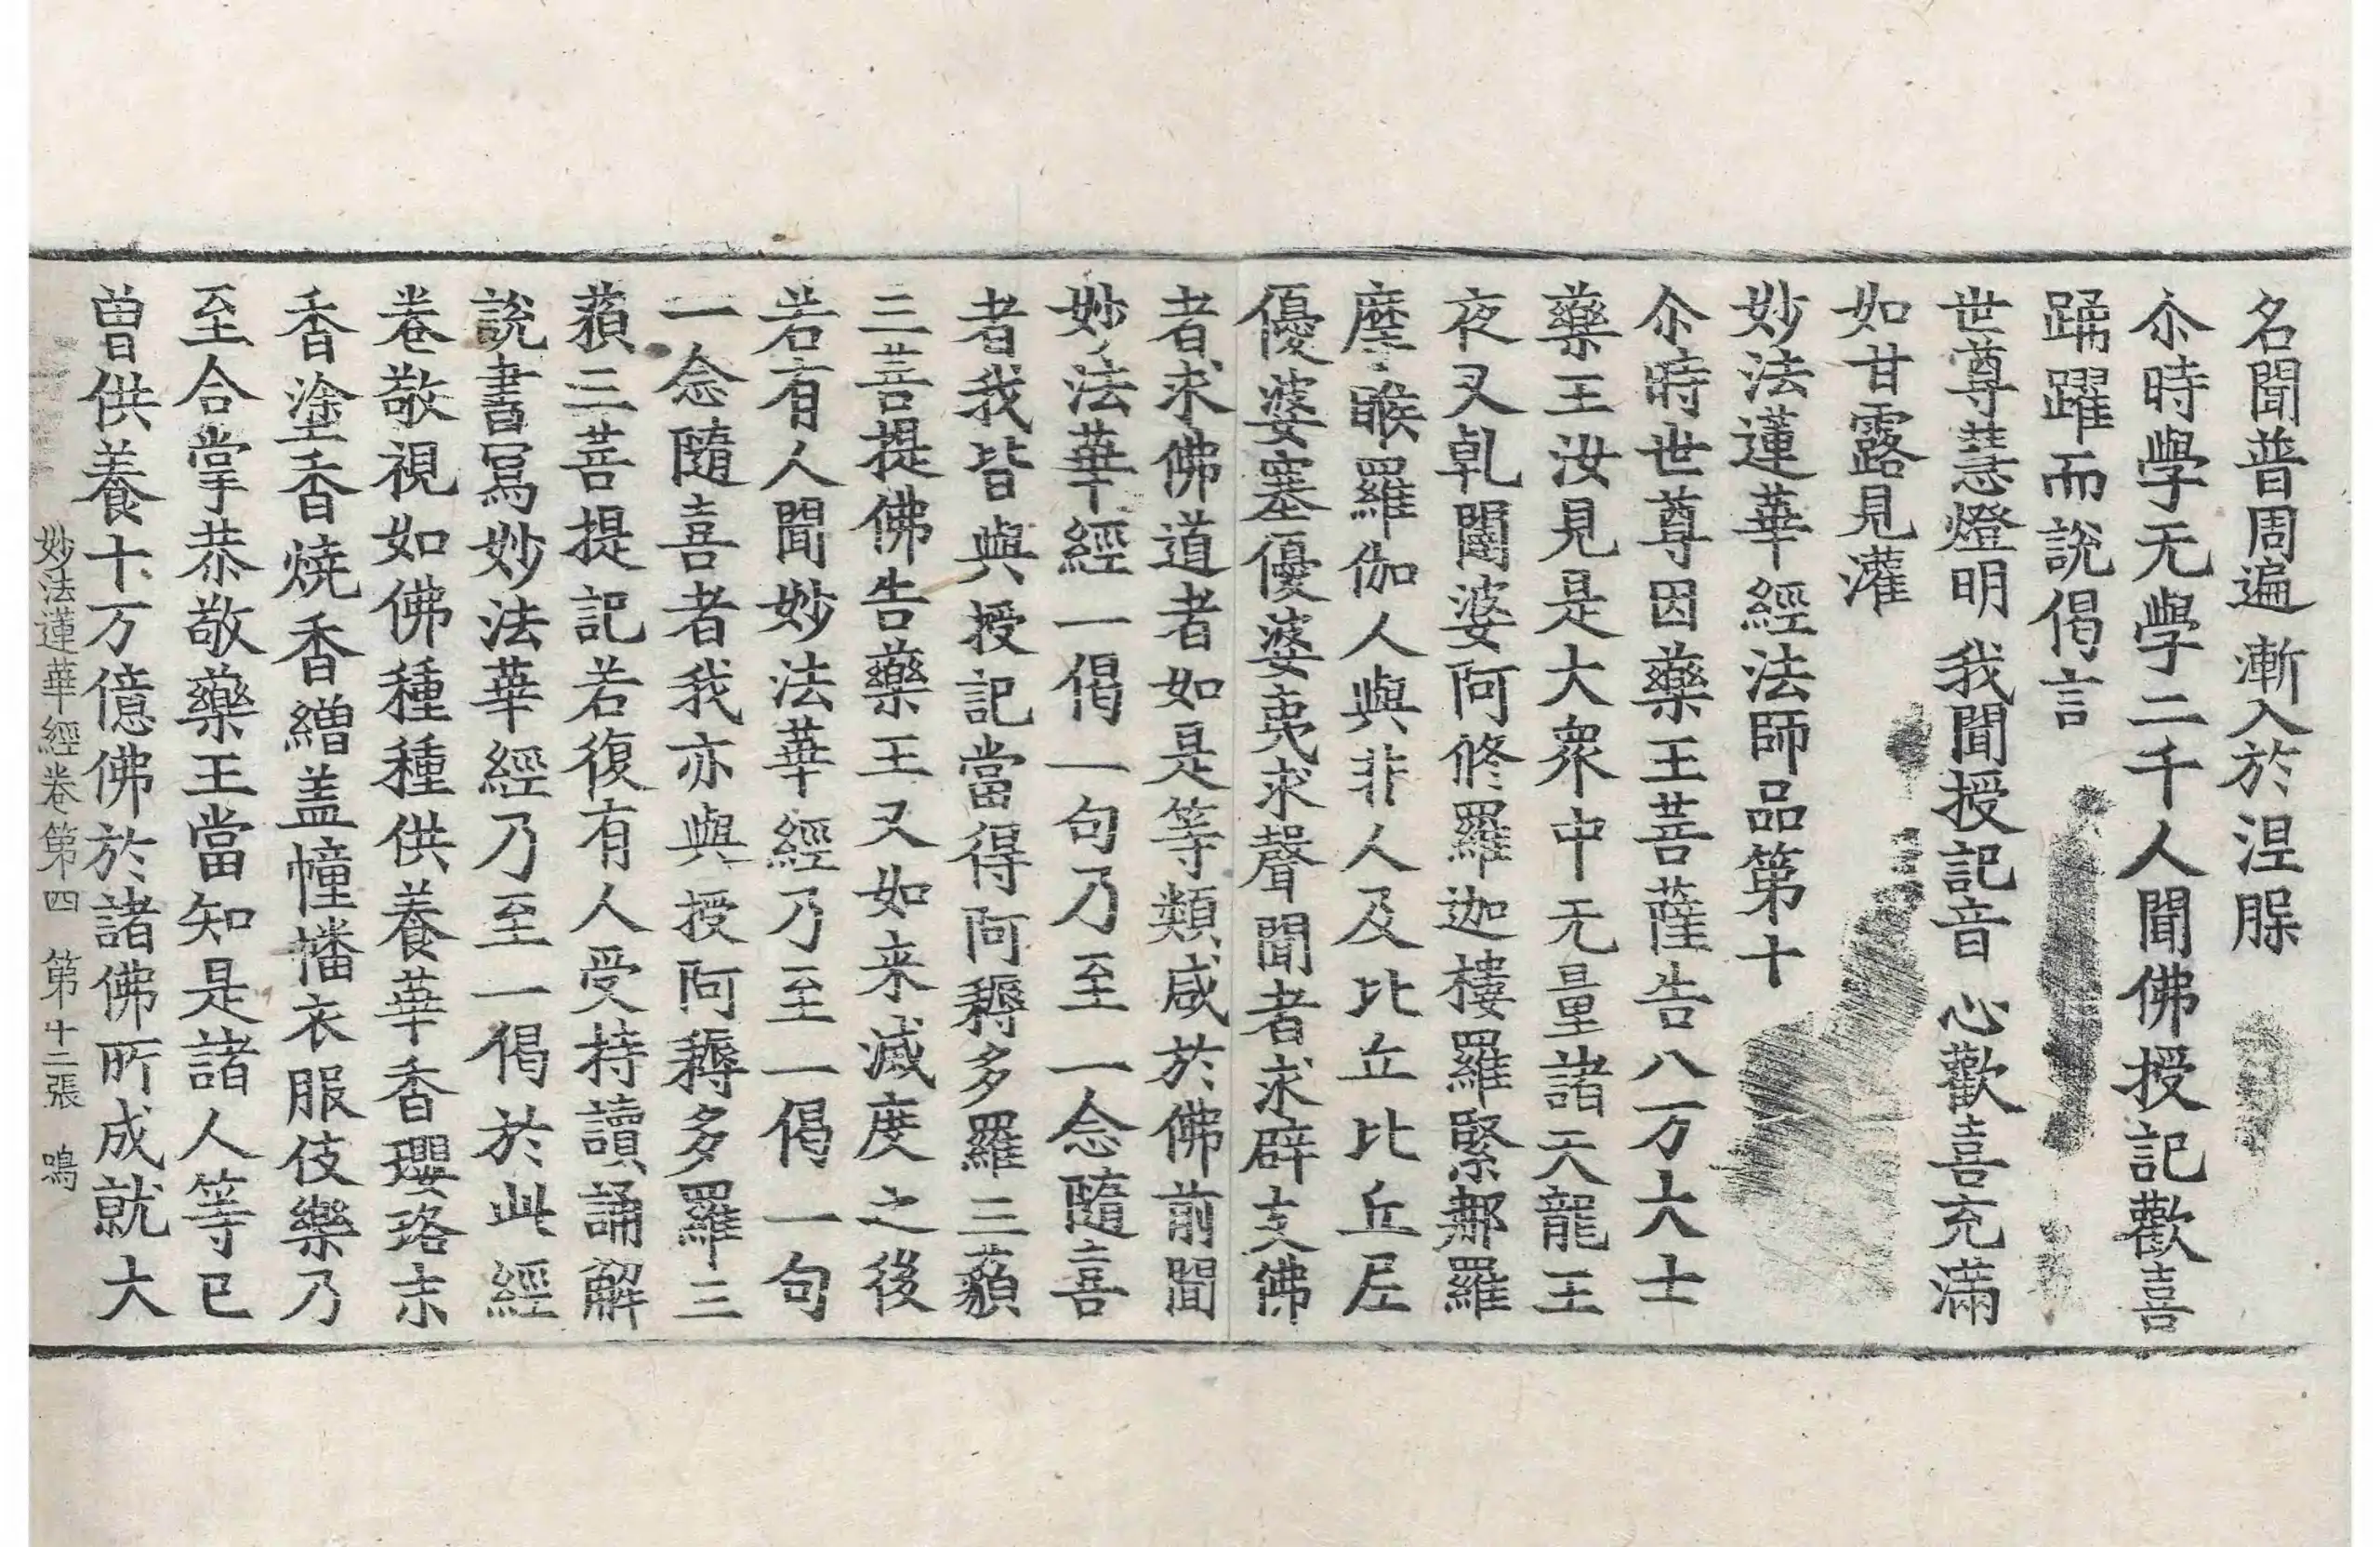 名聞普周遍 漸入於涅脲
尒時學无學二千人聞佛授記歡喜
踊躍而說偈言
世尊慧燈明 我聞授記音 心歡喜充滿
如甘露見灌
妙法蓮華經法師品第十
尒時世尊因藥王菩薩告八万大士
藥王汝見是大衆中无量諸天龍王
夜叉乹闥婆阿修羅迦樓羅緊那羅
摩睺羅伽人與非人及比丘比丘尼
優婆塞優婆夷求聲聞者求辟支佛
者求佛道者如是等類咸於佛前聞
妙法華經一偈一句乃至一念隨喜
者我皆與授記當得阿耨多羅三藐
三菩提佛告藥王又如来滅度之後
若有人聞妙法華經乃至一偈一句
一念隨喜者我亦與授阿耨多羅三
藐三菩提記若復有人受持讀誦解
說書寫妙法華經乃至一偈於此經
卷敬視如佛種種供養華香瓔珞末
香塗香燒香繒盖幢幡衣服伎樂乃
至合掌恭敬藥王當知是諸人等已
曾供養十万億佛於諸佛所成就大
妙法蓮華經卷第四 第十二張 鳴